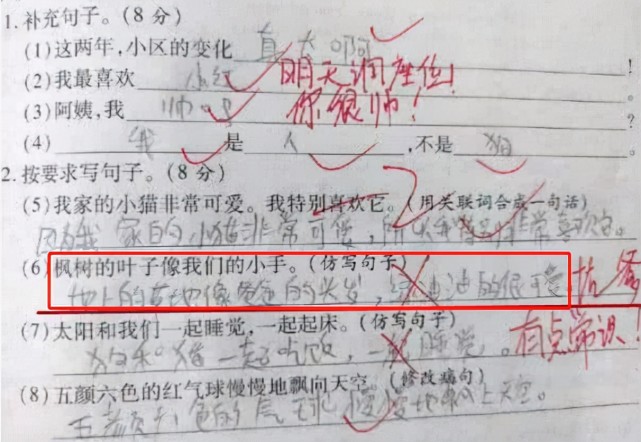 1.补充句子。(8分)
(1)这两年,小区的变化真大啊!
(2)我最喜欢小红。明天调座位!
(3)阿姨,我帅吗?你很帅!
(4)我是人,不是猫。
2.按要求写句子。(8分)
(5)我家的小猫非常可爱。我特别喜欢它。(用关联词合成一句话)
因为我家的小猫非常可爱,所以我非常喜欢它。
(6)枫树的叶子像我们的小手。(仿写句子)
地上的草地像爸爸的头发,绿油油的很可爱
(7)太阳和我们一起睡觉,一起起床。(仿写句子)有点常识!
狗和猫一起吃饭,一起睡觉。
(8)五颜六色的红气球慢慢地飘向天空。(修改病句)
五颜六色的气球慢慢地飘上天空。